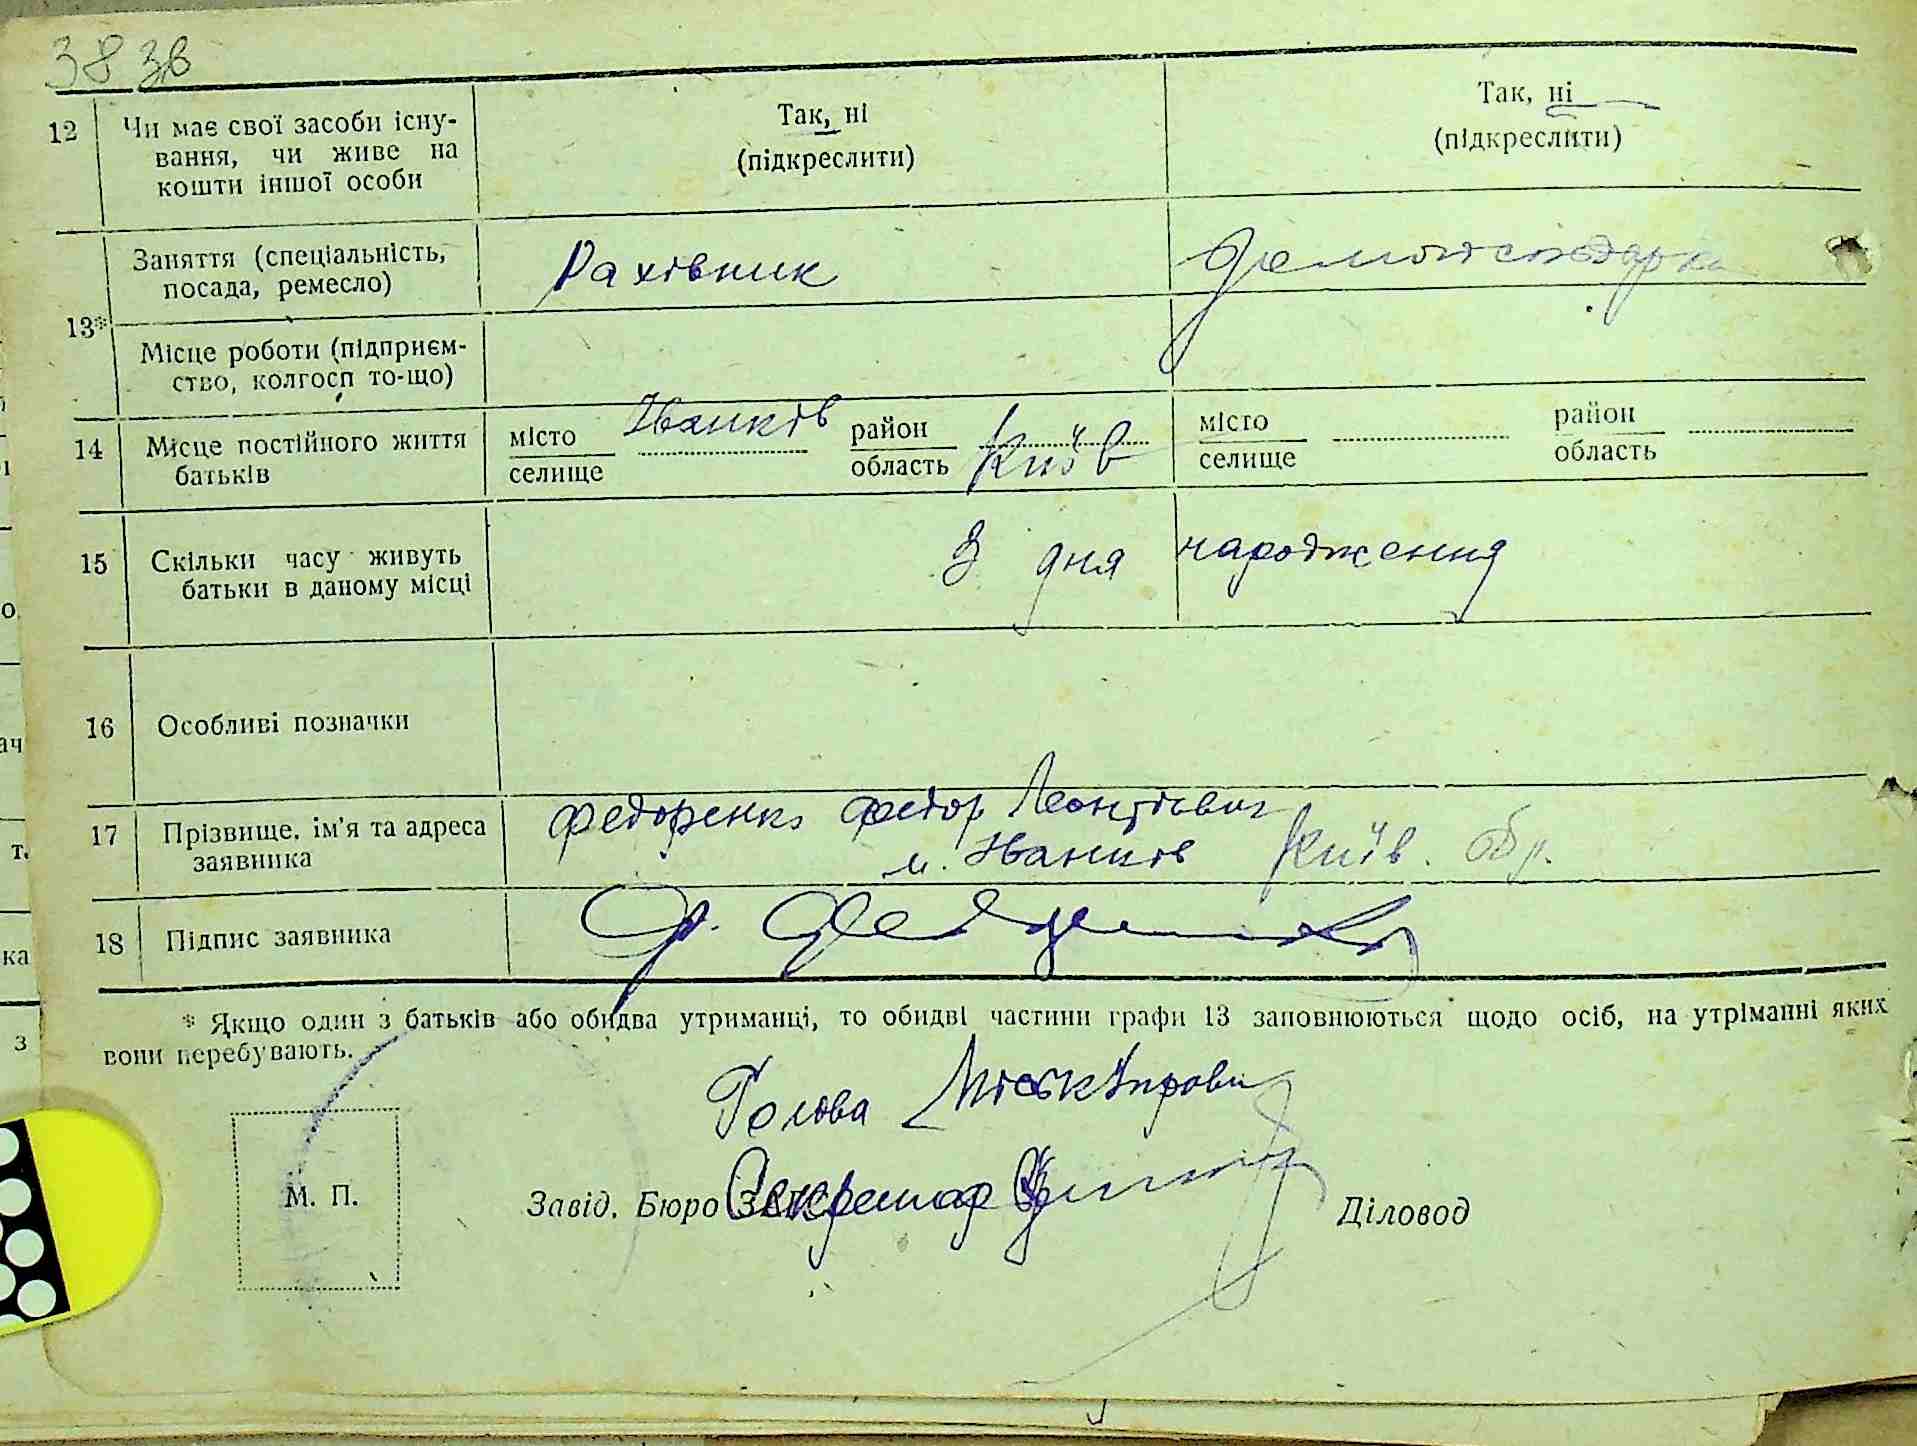 38 зв
12 Чи має свої засоби існу-
вання, чи живе на
кошти іншої особи
Так, ні
(підкреслити)
Так, ні
(підкреслити)
13*
Заняття (спеціальність,
посада, ремесло)
Рахівник
Домогосподарка
Місце роботи (підприєм-
ство, колгосп то-що)
14 Місце постійного життя
батьків
місто
селище
Іванків
район
область
Київ
місто
селище
район
область
15 Скільки часу живуть
батьки в даному місці
З дня народження
16 Особливі позначки
17 Прізвище, ім'я та адреса
заявника
Федоренко Федор Леонтієвич
м. Іванков Київ. обл.
18 Підпис заявника
* Якщо один з батьків або обидва утриманці, то обидві частини графи 13 заповнюються щодо осіб, на утріманні яких
вони перебувають.
Голова Міськ
М. П.
Завід. Бюро ЗАГС
Секретар
Діловод